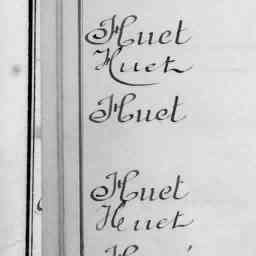 Huet
Huet
Huet
Huet
Huet